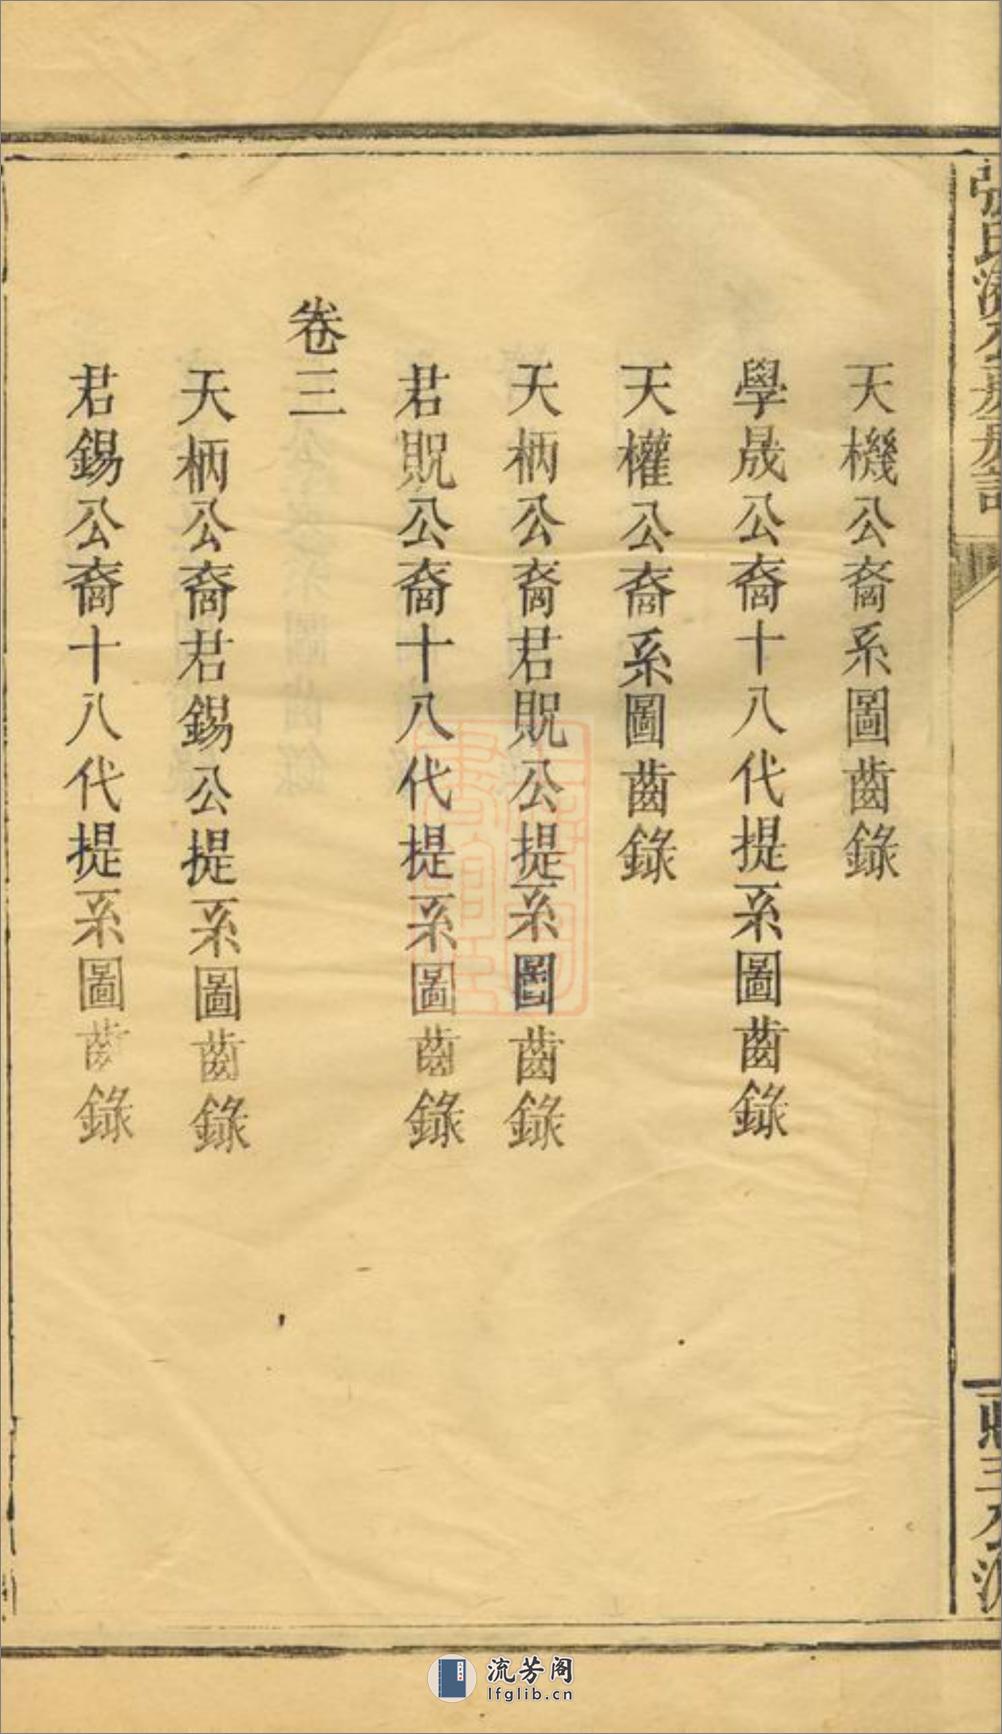 天機公裔系圖齒錄
學晟公裔十八代提系圖齒錄
天權公裔系圖齒錄
天柄公裔君貺公提系圖齒錄
君貺公裔十八代提系圖齒錄
卷三
天柄公裔君錫公提系圖齒錄
君錫公裔十八代提系圖齒錄
流芳阁
lfglib.cn